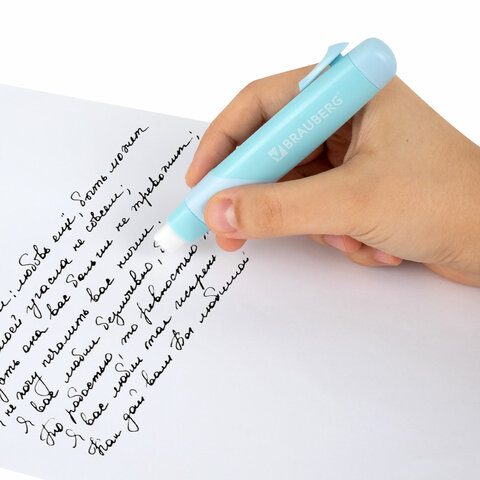 любовь ещё, быть может
моей угасла не совсем;
она вас больше не тревожит;
не хочу печалить вас ничем.
Я вас любил безмолвно,
То робостью, то ревностью
Я вас любил так искрен
Как дай вам Бог любимой
BRAUBERG